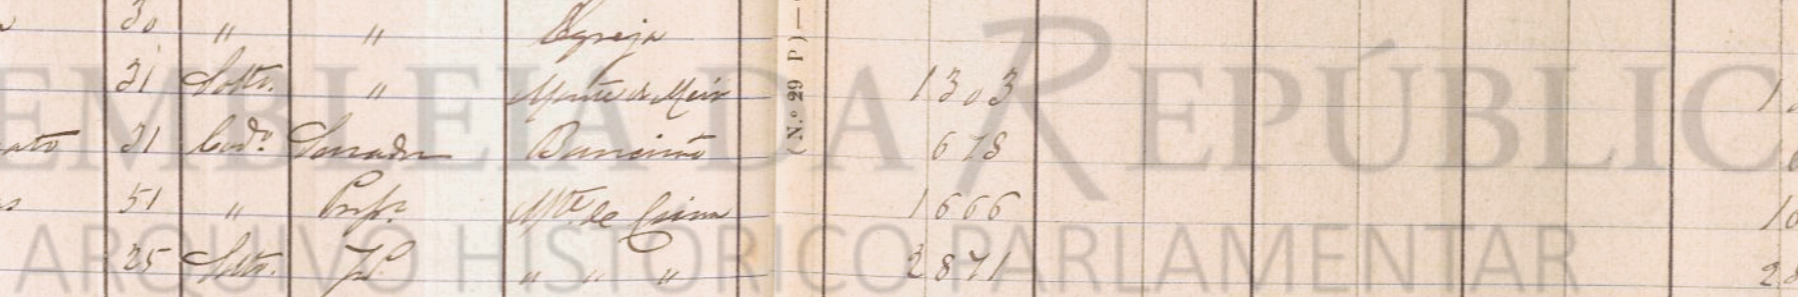 30 " " Egreja
31 Soltr. " Monte de Meio 1303
ato 31 Casdo. Serrador Barreiro 678
51 " Propr. Mte. de Cima 1666 10
25 Soltr. Jl. " " " 2871 28
(N.º 29 P)
ASSEMBLEIA DA REPÚBLICA
ARQUIVO HISTÓRICO PARLAMENTAR